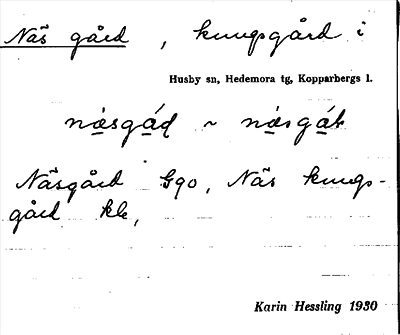 Näs gård, kungsgård i
Husby sn, Hedemora tg, Kopparbergs l.
Näsgård Gqo, Näs kungs-
gård kle,
Karin Hessling 1930